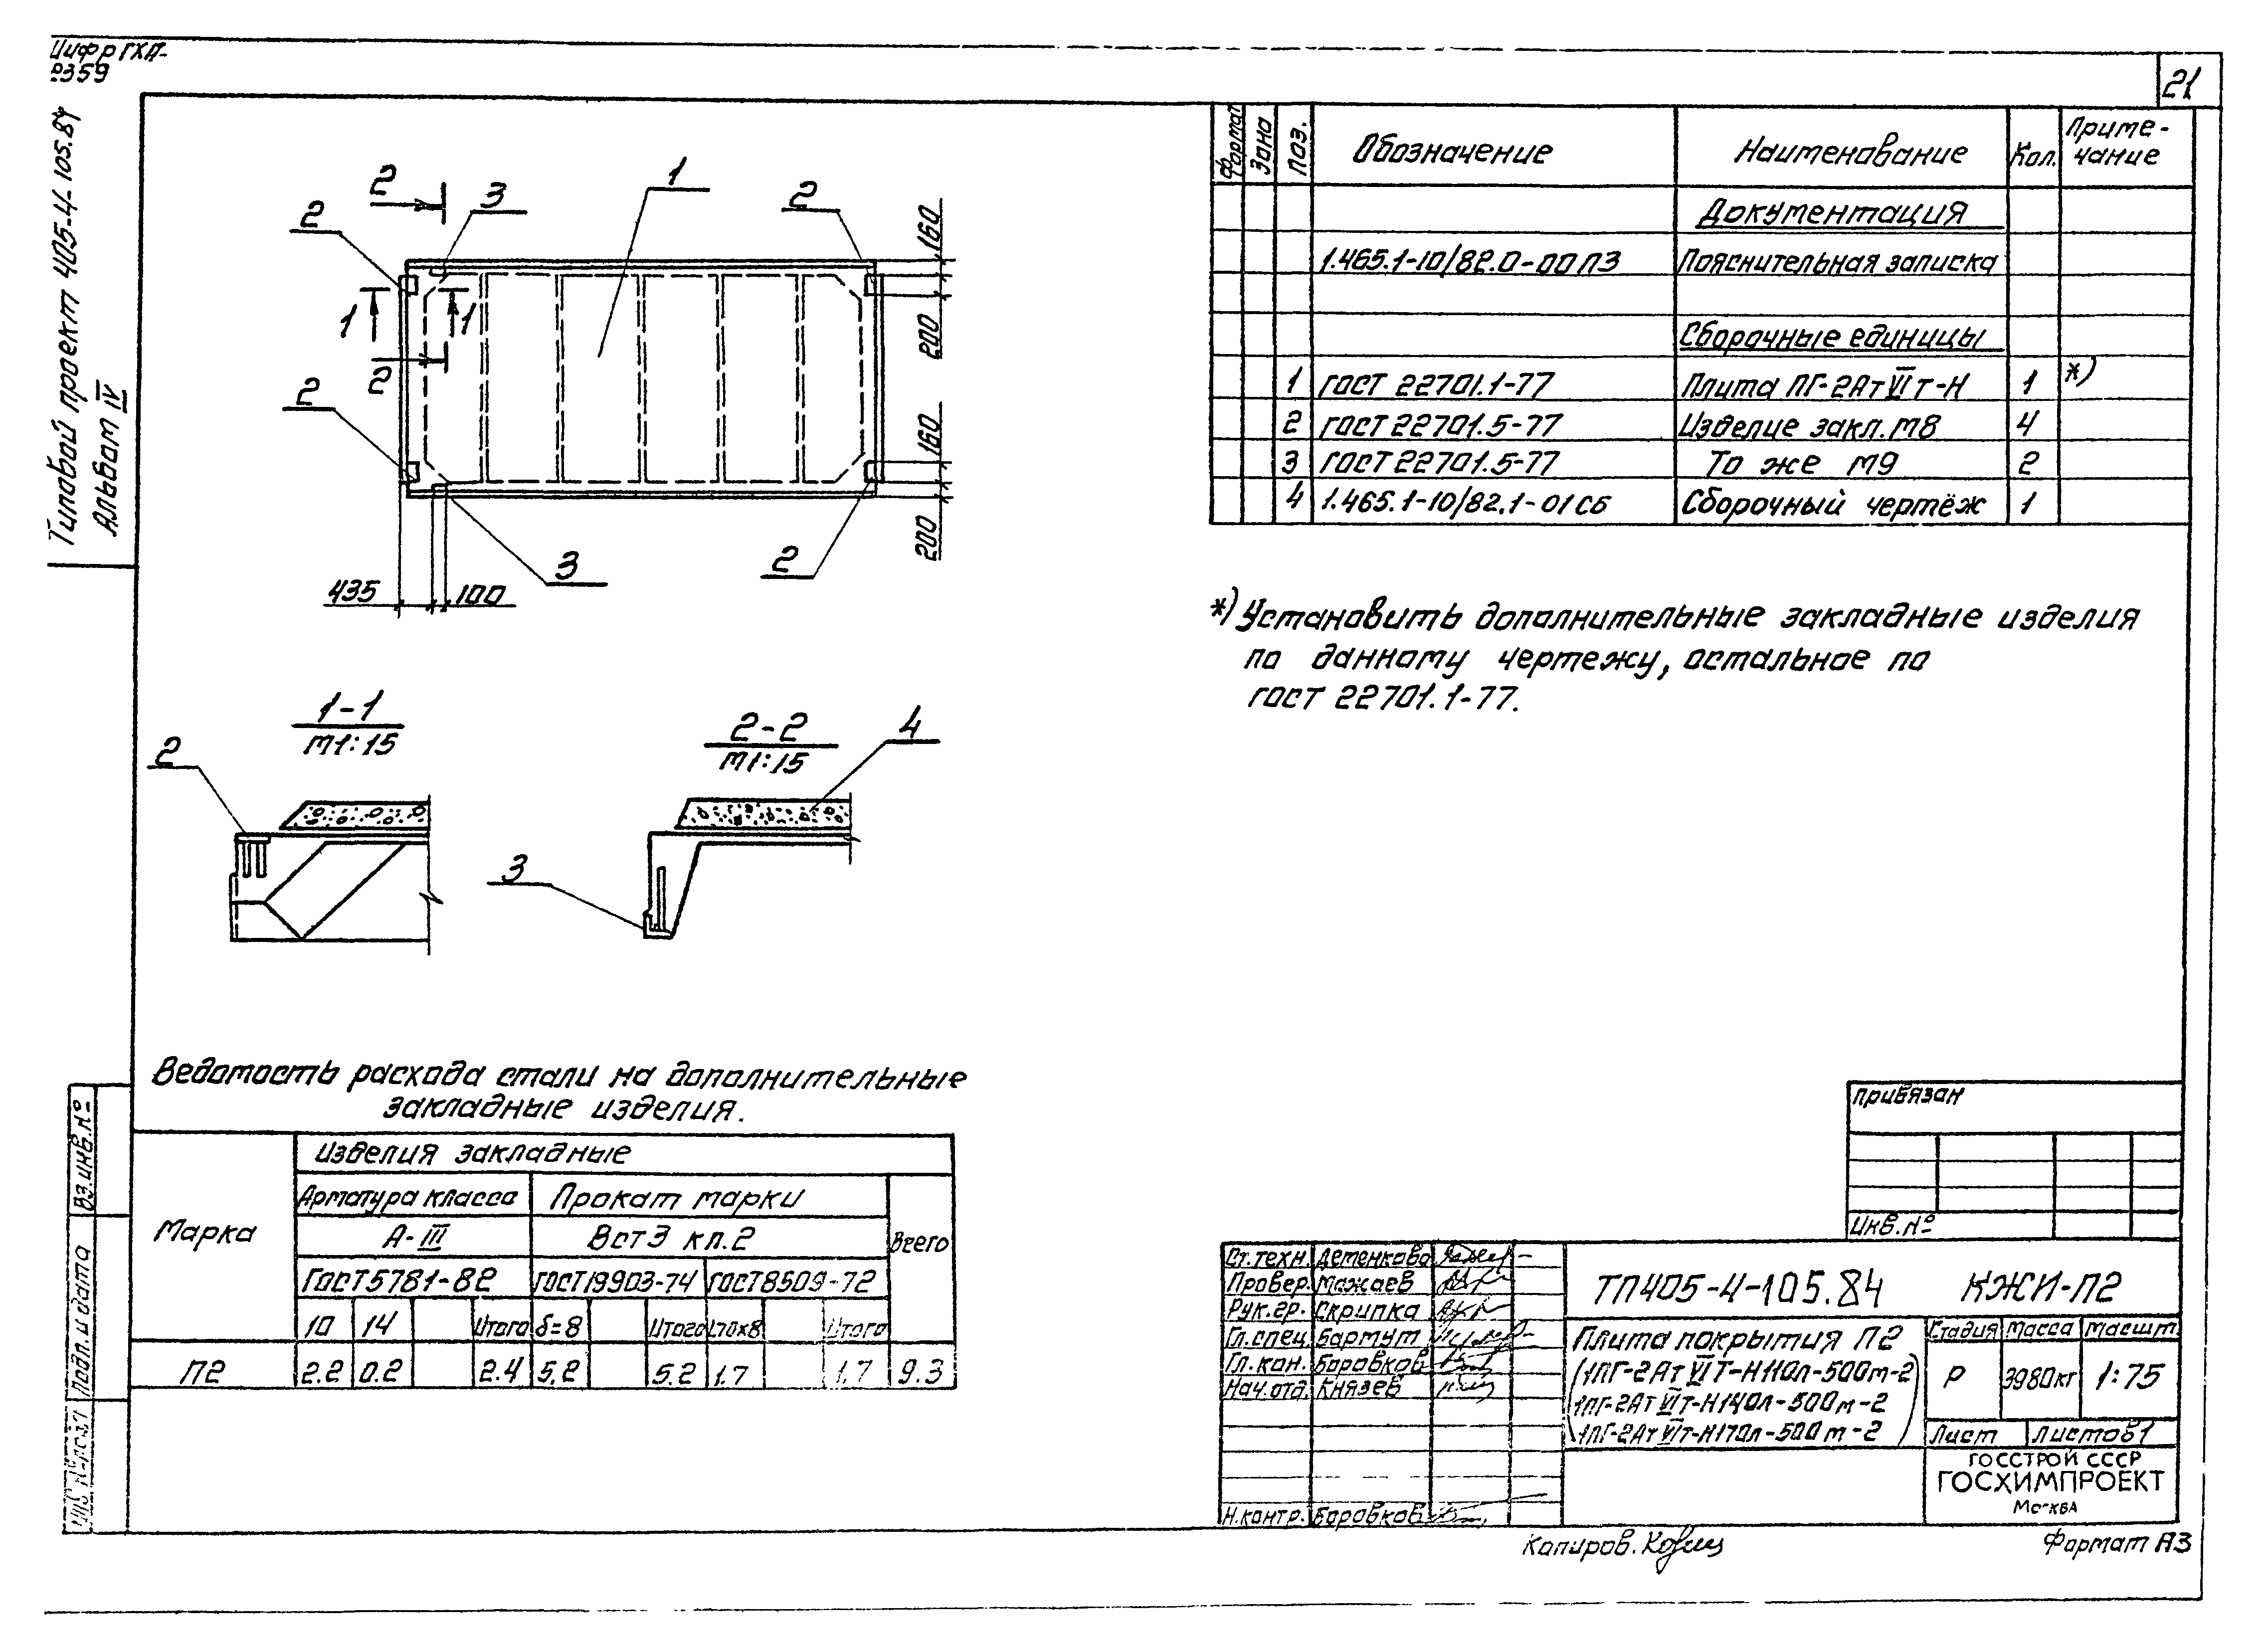 Шифр ГХП-
359
21
Типовой проект 405-4-105.84
Альбом IV
2
3
1
2
2
160
200
1
1
2
2
160
200
3
2
435
100
1-1
М1:15
2
2-2
М1:15
4
3
Формат
Зона
Поз.
Обозначение
Наименование
Кол.
Приме-
чание
Документация
1.465.1-10/82.0-00ПЗ
Пояснительная записка
Сборочные единицы
1 ГОСТ 22701.1-77 Плита ПГ-2АтVIт-Н 1 *)
2 ГОСТ 22701.5-77 Изделие закл. М8 4
3 ГОСТ 22701.5-77 То же М9 2
4 1.465.1-10/82.1-01СБ Сборочный чертёж 1
*) Установить дополнительные закладные изделия
по данному чертежу, остальное по
ГОСТ 22701.1-77.
Ведомость расхода стали на дополнительные
закладные изделия.
Марка
Изделия закладные
Арматура класса
Прокат марки
Всего
А-III
ВСт3 кп.2
ГОСТ 5781-82
ГОСТ19903-74
ГОСТ8509-72
10 14 Итого δ=8 Итого L70х8 Итого
П2 2.2 0.2 2.4 5.2 5.2 1.7 1.7 9.3
Вз.инв.№
Подп. и дата
Привязан
Инв.№
Ст.техн. Детенкова
Провер. Можаев
Рук.гр. Скрипка
Гл.спец. Бартут
Гл.кон. Боровков
Нач.отд. Князев
Н.контр. Боровков
ТП405-4-105.84 КЖИ-П2
Плита покрытия П2
(1ПГ-2АтVIТ-Н110л-500м-2
1ПГ-2АтVIт-Н140л-500м-2
1ПГ-2АтVIт-Н170л-500м-2)
Стадия Масса Масшт.
Р 3980кг 1:75
Лист Листов1
ГОССТРОЙ СССР
ГОСХИМПРОЕКТ
Москва
Копиров.
Формат А3